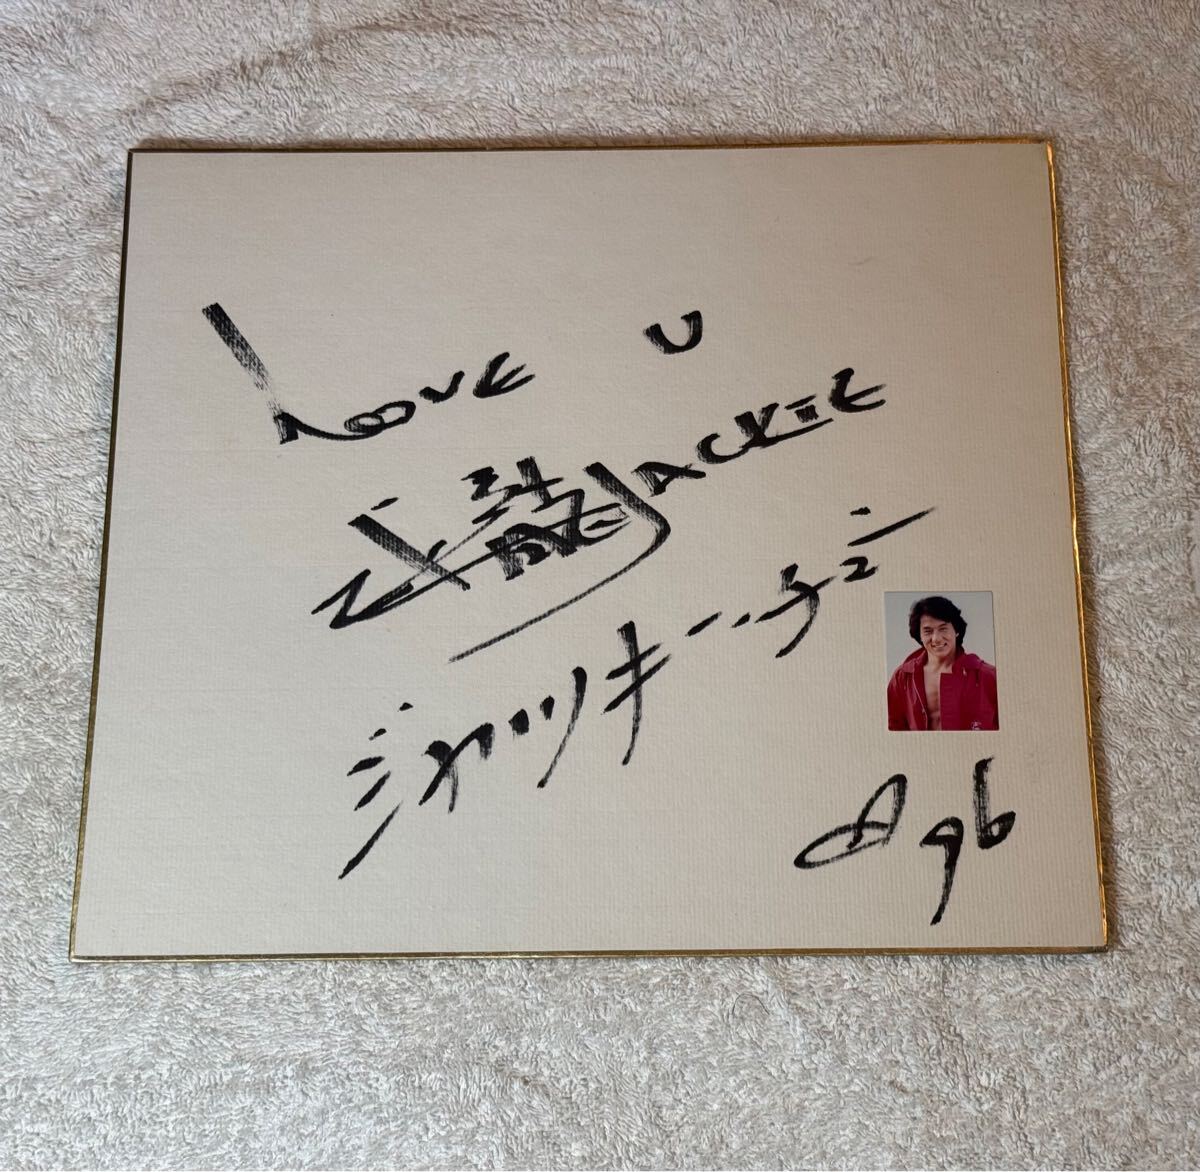 Love U
成龍 JACKIE
ジャッキーチェン